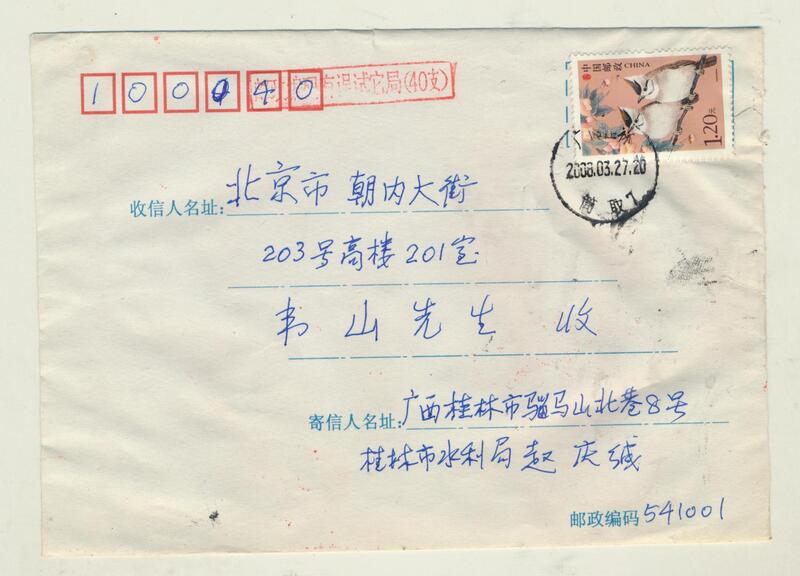 100040
有误试它局(40支)
中国邮政 CHINA
1.20元
2008.03.27.20
收信人名址: 北京市 朝内大街
203号高楼201室
韦山先生 收
寄信人名址: 广西桂林市骝马山北巷8号
桂林市水利局 赵庆
邮政编码 541001